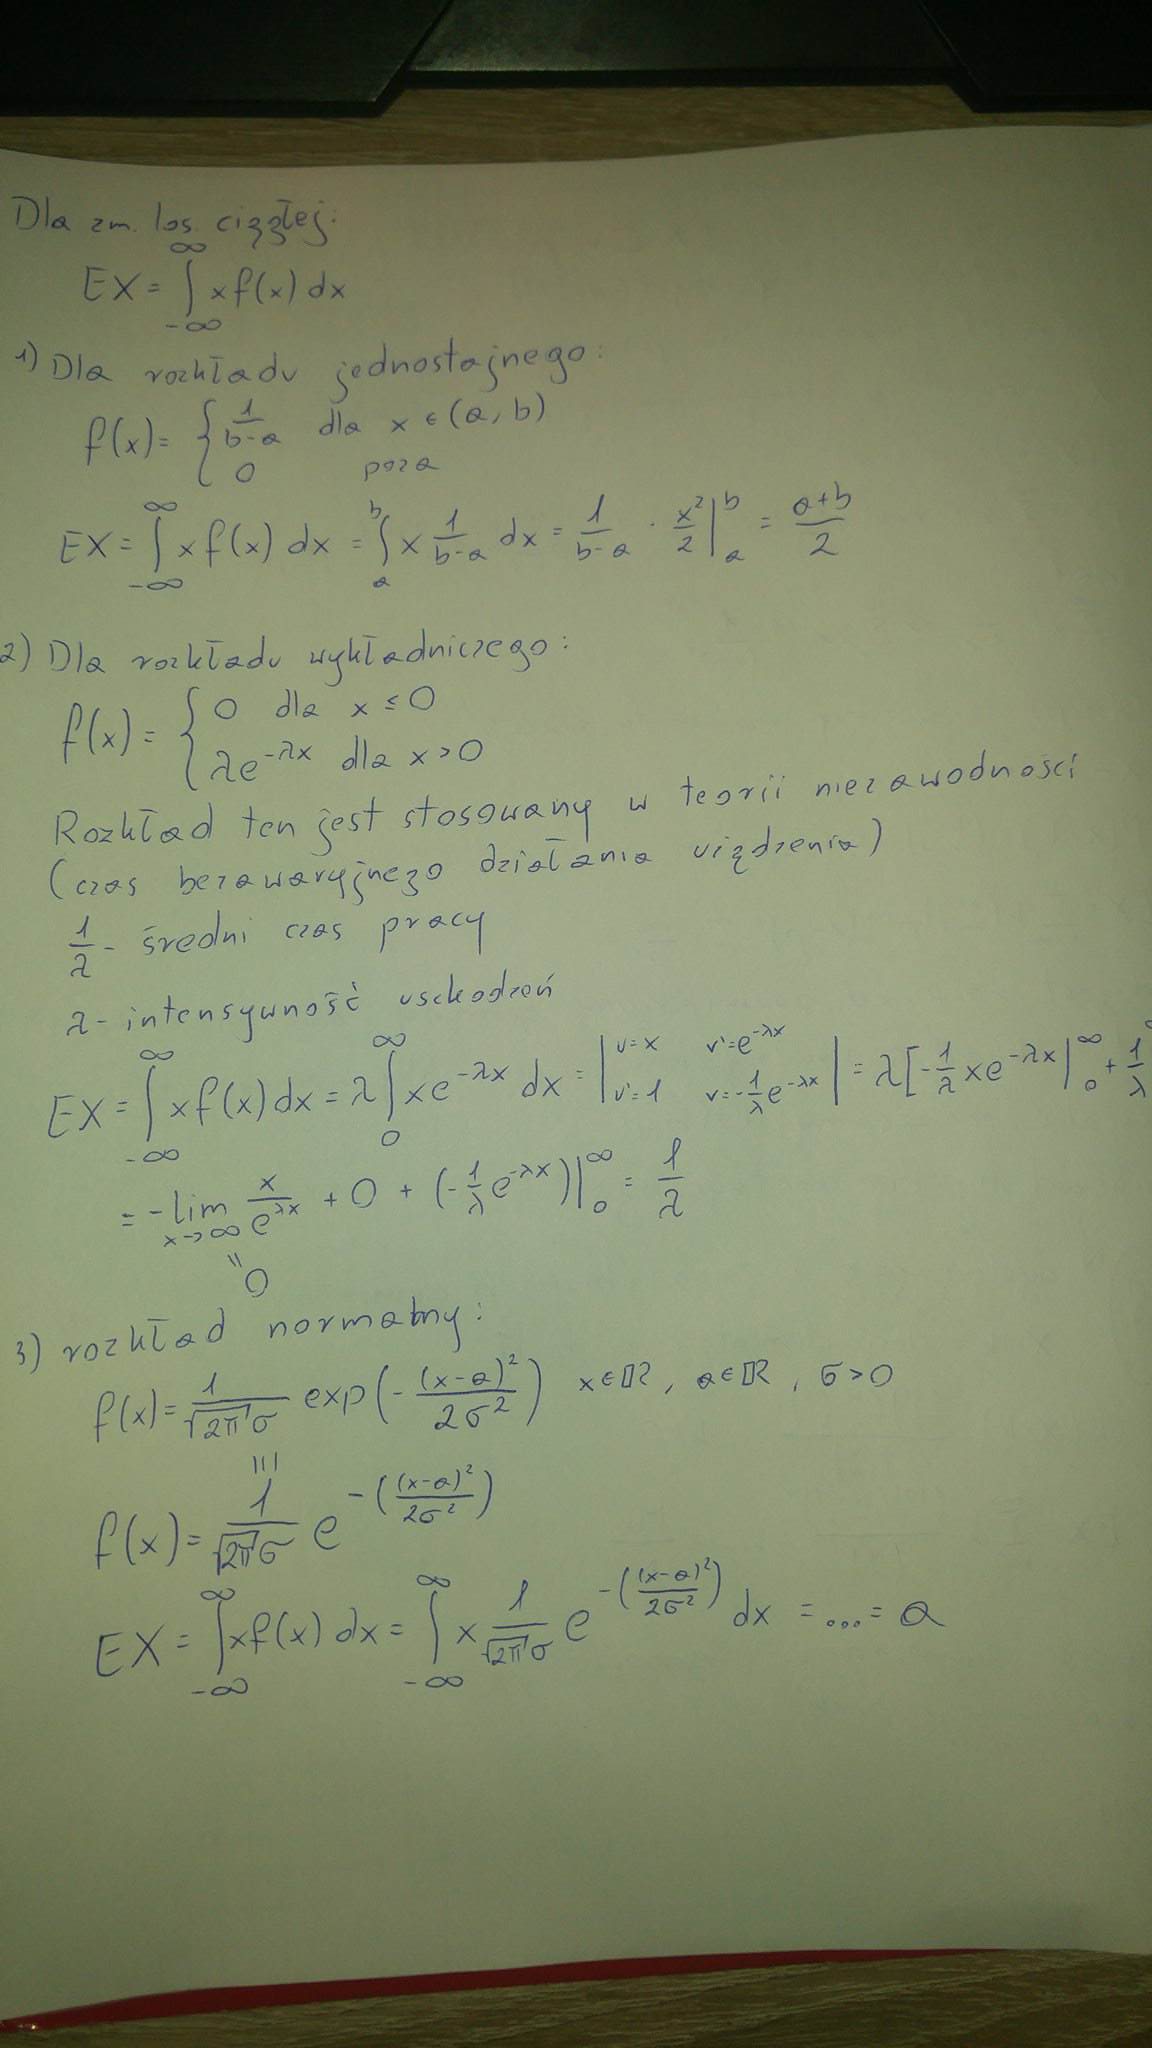 Dla zm. los. ciągłej:
EX = ∫_{-∞}^{∞} x f(x) dx
1) Dla rozkładu jednostajnego:
f(x) = { 1/(b-a) dla x ∈ (a, b)
0 poza
EX = ∫_{-∞}^{∞} x f(x) dx = ∫_{a}^{b} x 1/(b-a) dx = 1/(b-a) · x²/2 |_{a}^{b} = (a+b)/2
2) Dla rozkładu wykładniczego:
f(x) = { 0 dla x ≤ 0
λe^{-λx} dla x > 0
Rozkład ten jest stosowany w teorii niezawodności
(czas bezawaryjnego działania urządzenia)
1/λ - średni czas pracy
λ - intensywność uszkodzeń
EX = ∫_{-∞}^{∞} x f(x) dx = λ ∫_{0}^{∞} x e^{-λx} dx = | u = x v' = e^{-λx} u' = 1 v = -1/λ e^{-λx} | = λ[-1/λ x e^{-λx} |_{0}^{∞} + 1/λ
= -lim_{x→∞} x/e^{λx} + 0 + (-1/λ e^{-λx}) |_{0}^{∞} = 1/λ
" 0
3) rozkład normalny:
f(x) = 1/(√2π σ) exp(-(x-a)²/2σ²) x ∈ ℝ, a ∈ ℝ, σ > 0
|||
f(x) = 1/(√2π σ) e^{-((x-a)²/2σ²)}
EX = ∫_{-∞}^{∞} x f(x) dx = ∫_{-∞}^{∞} x 1/(√2π σ) e^{-((x-a)²/2σ²)} dx = ... = a